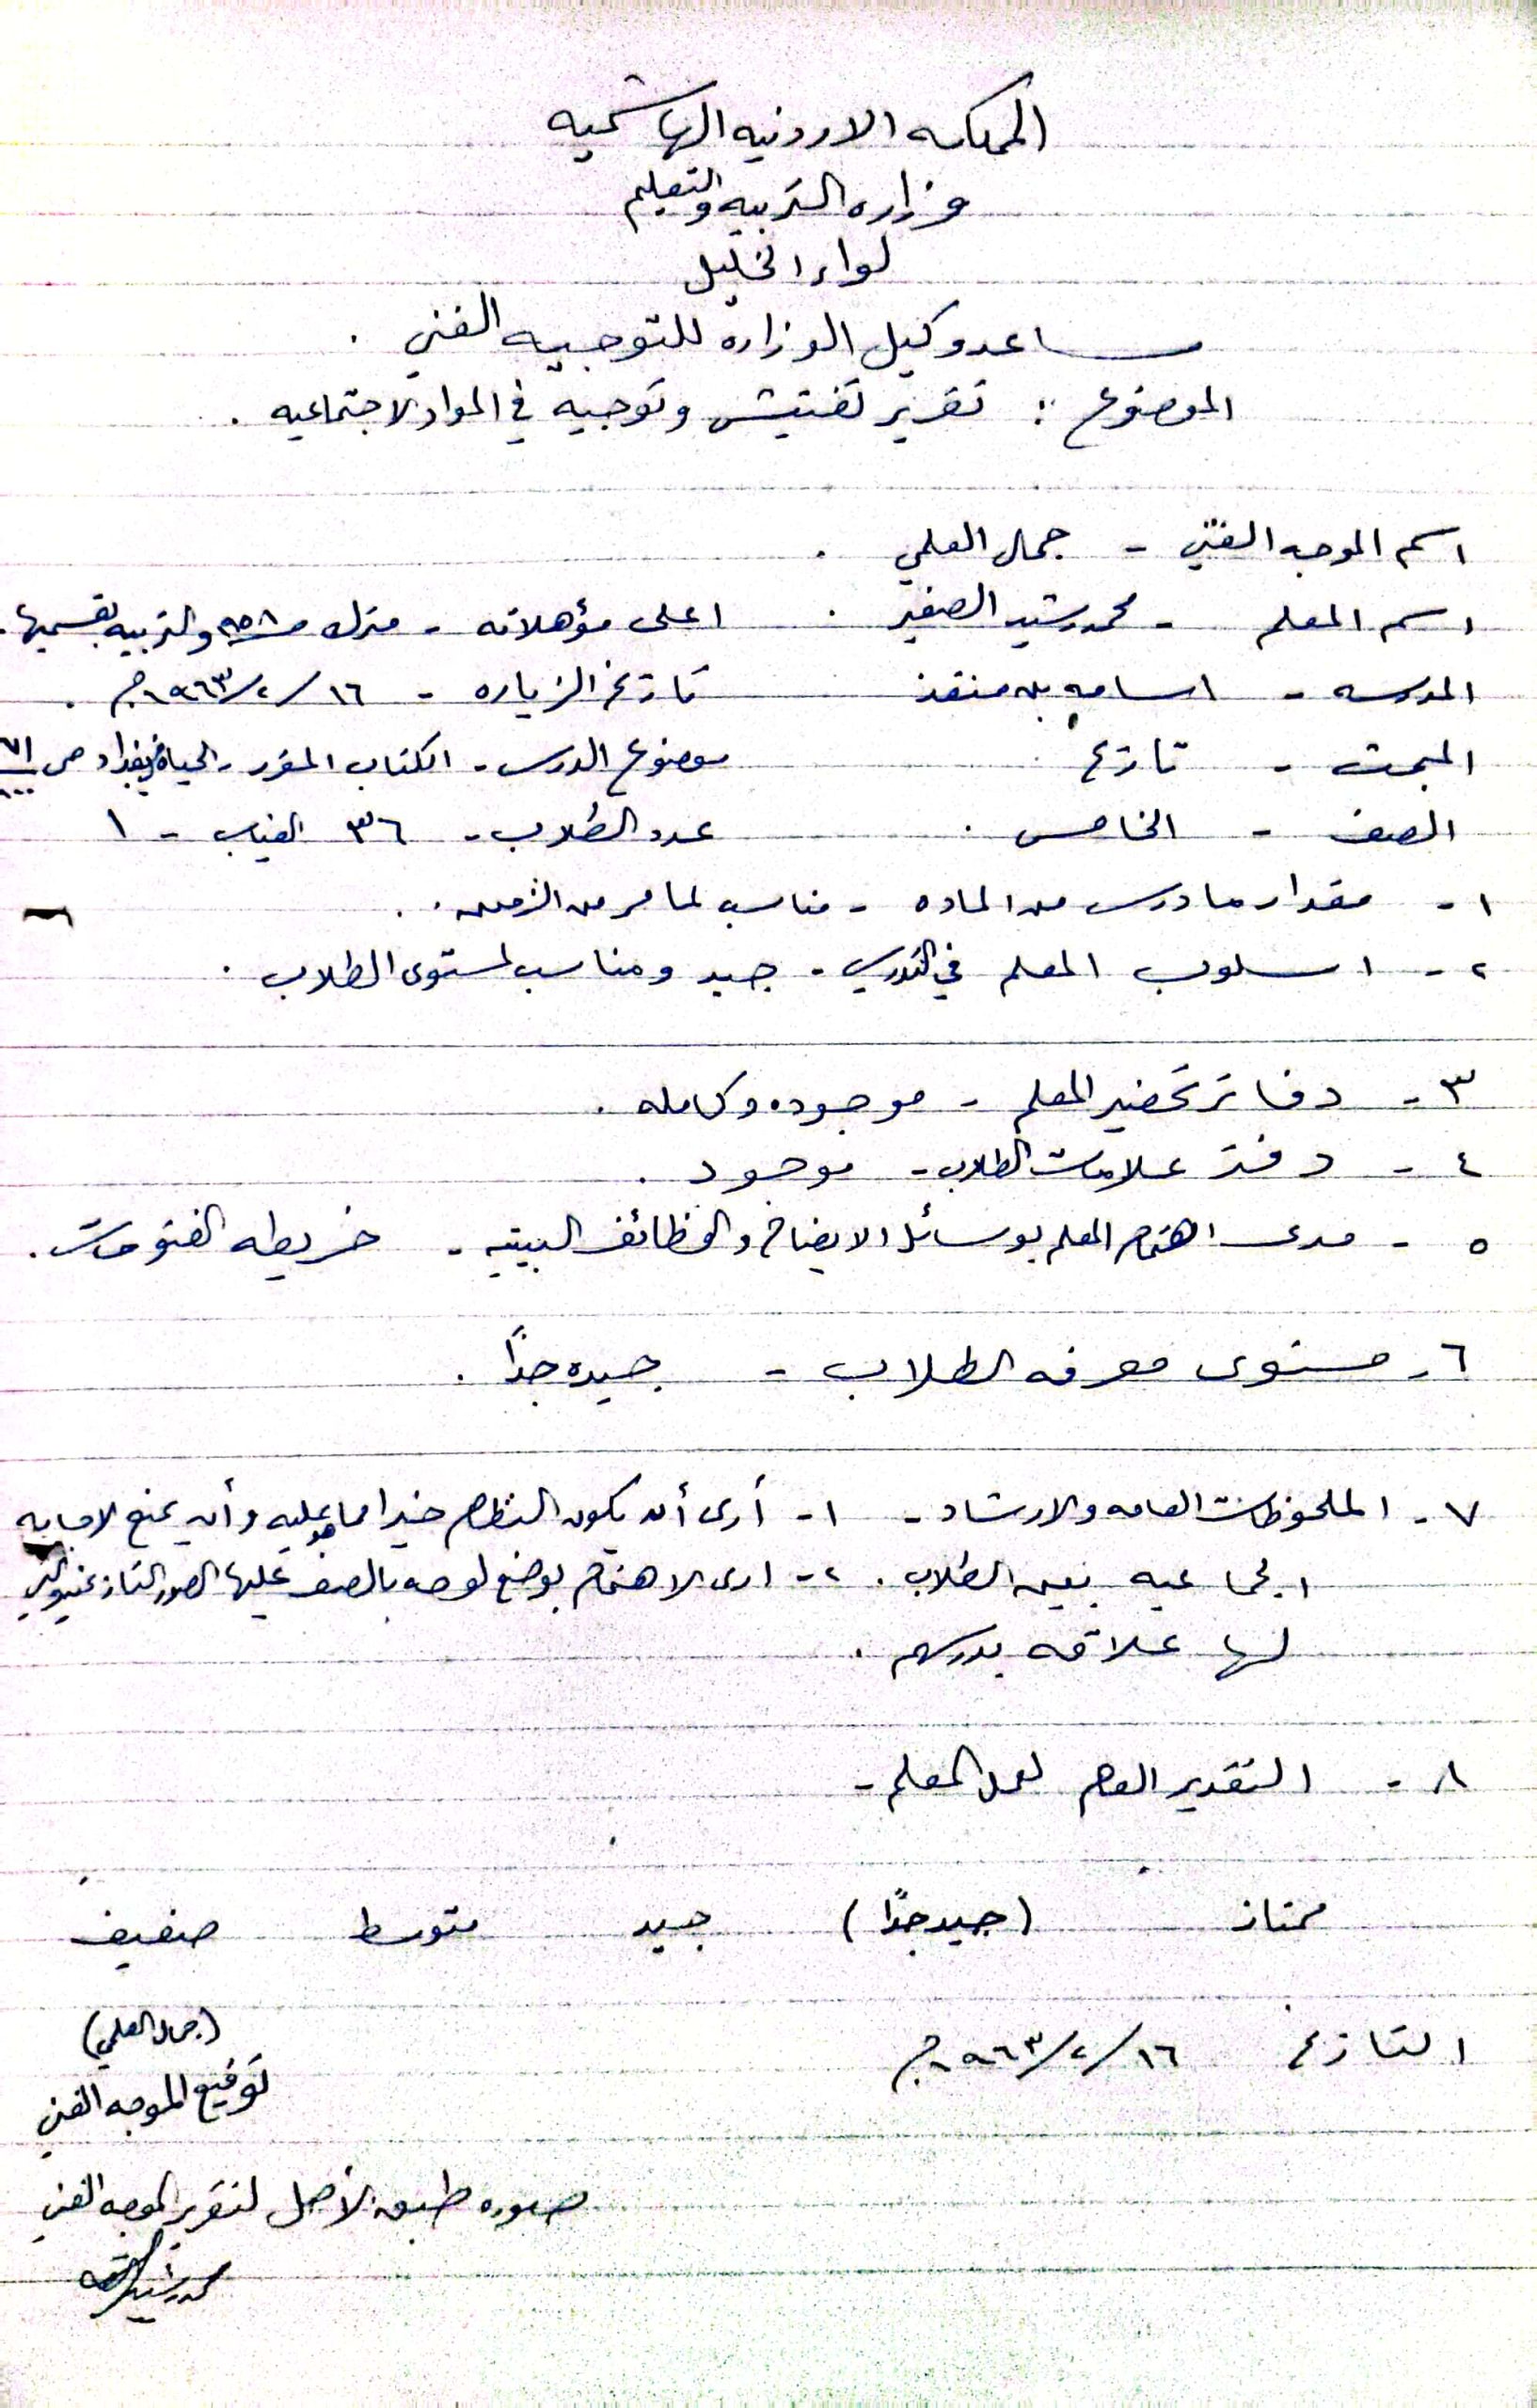 المملكه الاردنيه الهاشميه
وزاره التربيه والتعليم
لواء الخليل
مساعد وكيل الوزاره للتوجيه الفني .
الموضوع : تقرير تفتيش وتوجيه في المواد الاجتماعيه .
اسم الموجه الفني - جمال العلمي .
اسم المعلم - محمد رشيد الصغير . اعلى مؤهلاته - مترك ٩٥٨ والتربيه بقسميها .
المدرسه - اسامه بن منقذ تاريخ الزياره - ١٦/٢/٩٦٣ م .
المبحث - تاريخ موضوع الدرس - الكتاب المقرر - الحياة في بغداد ص ٧١
الصف - الخامس . عدد الطلاب - ٣٦ الغياب - ١
١ - مقدار ما درس من الماده - مناسب لما مر من الزمن .
٢ - اسلوب المعلم في التدريس - جيد ومناسب لمستوى الطلاب .
٣ - دفاتر تحضير المعلم - موجوده وكامله .
٤ - دفتر علامات الطلاب - موجود .
٥ - مدى اهتمام المعلم بوسائل الايضاح والوظائف البيتيه - خريطه الفتوحات .
٦ - مستوى معرفه الطلاب - جيده جداً .
٧ - الملحوظات العامه والارشاد - ١ - أرى أن يكون النظام خيرا مما هو عليه وأن يمنع الاجابه
الجماعيه بين الطلاب . ٢ - ارى الاهتمام بوضع لوحه بالصف عليها الصور التاريخيه والتي
لها علاقه بدرسهم .
٨ - التقدير العام لعمل المعلم -
ممتاز (جيد جداً) جيد متوسط ضعيف
(جمال العلمي)
التاريخ ١٦/٢/٩٦٣ م
توقيع الموجه الفني
صوره طبق الأصل لتقرير الموجه الفني
محمد رشيد